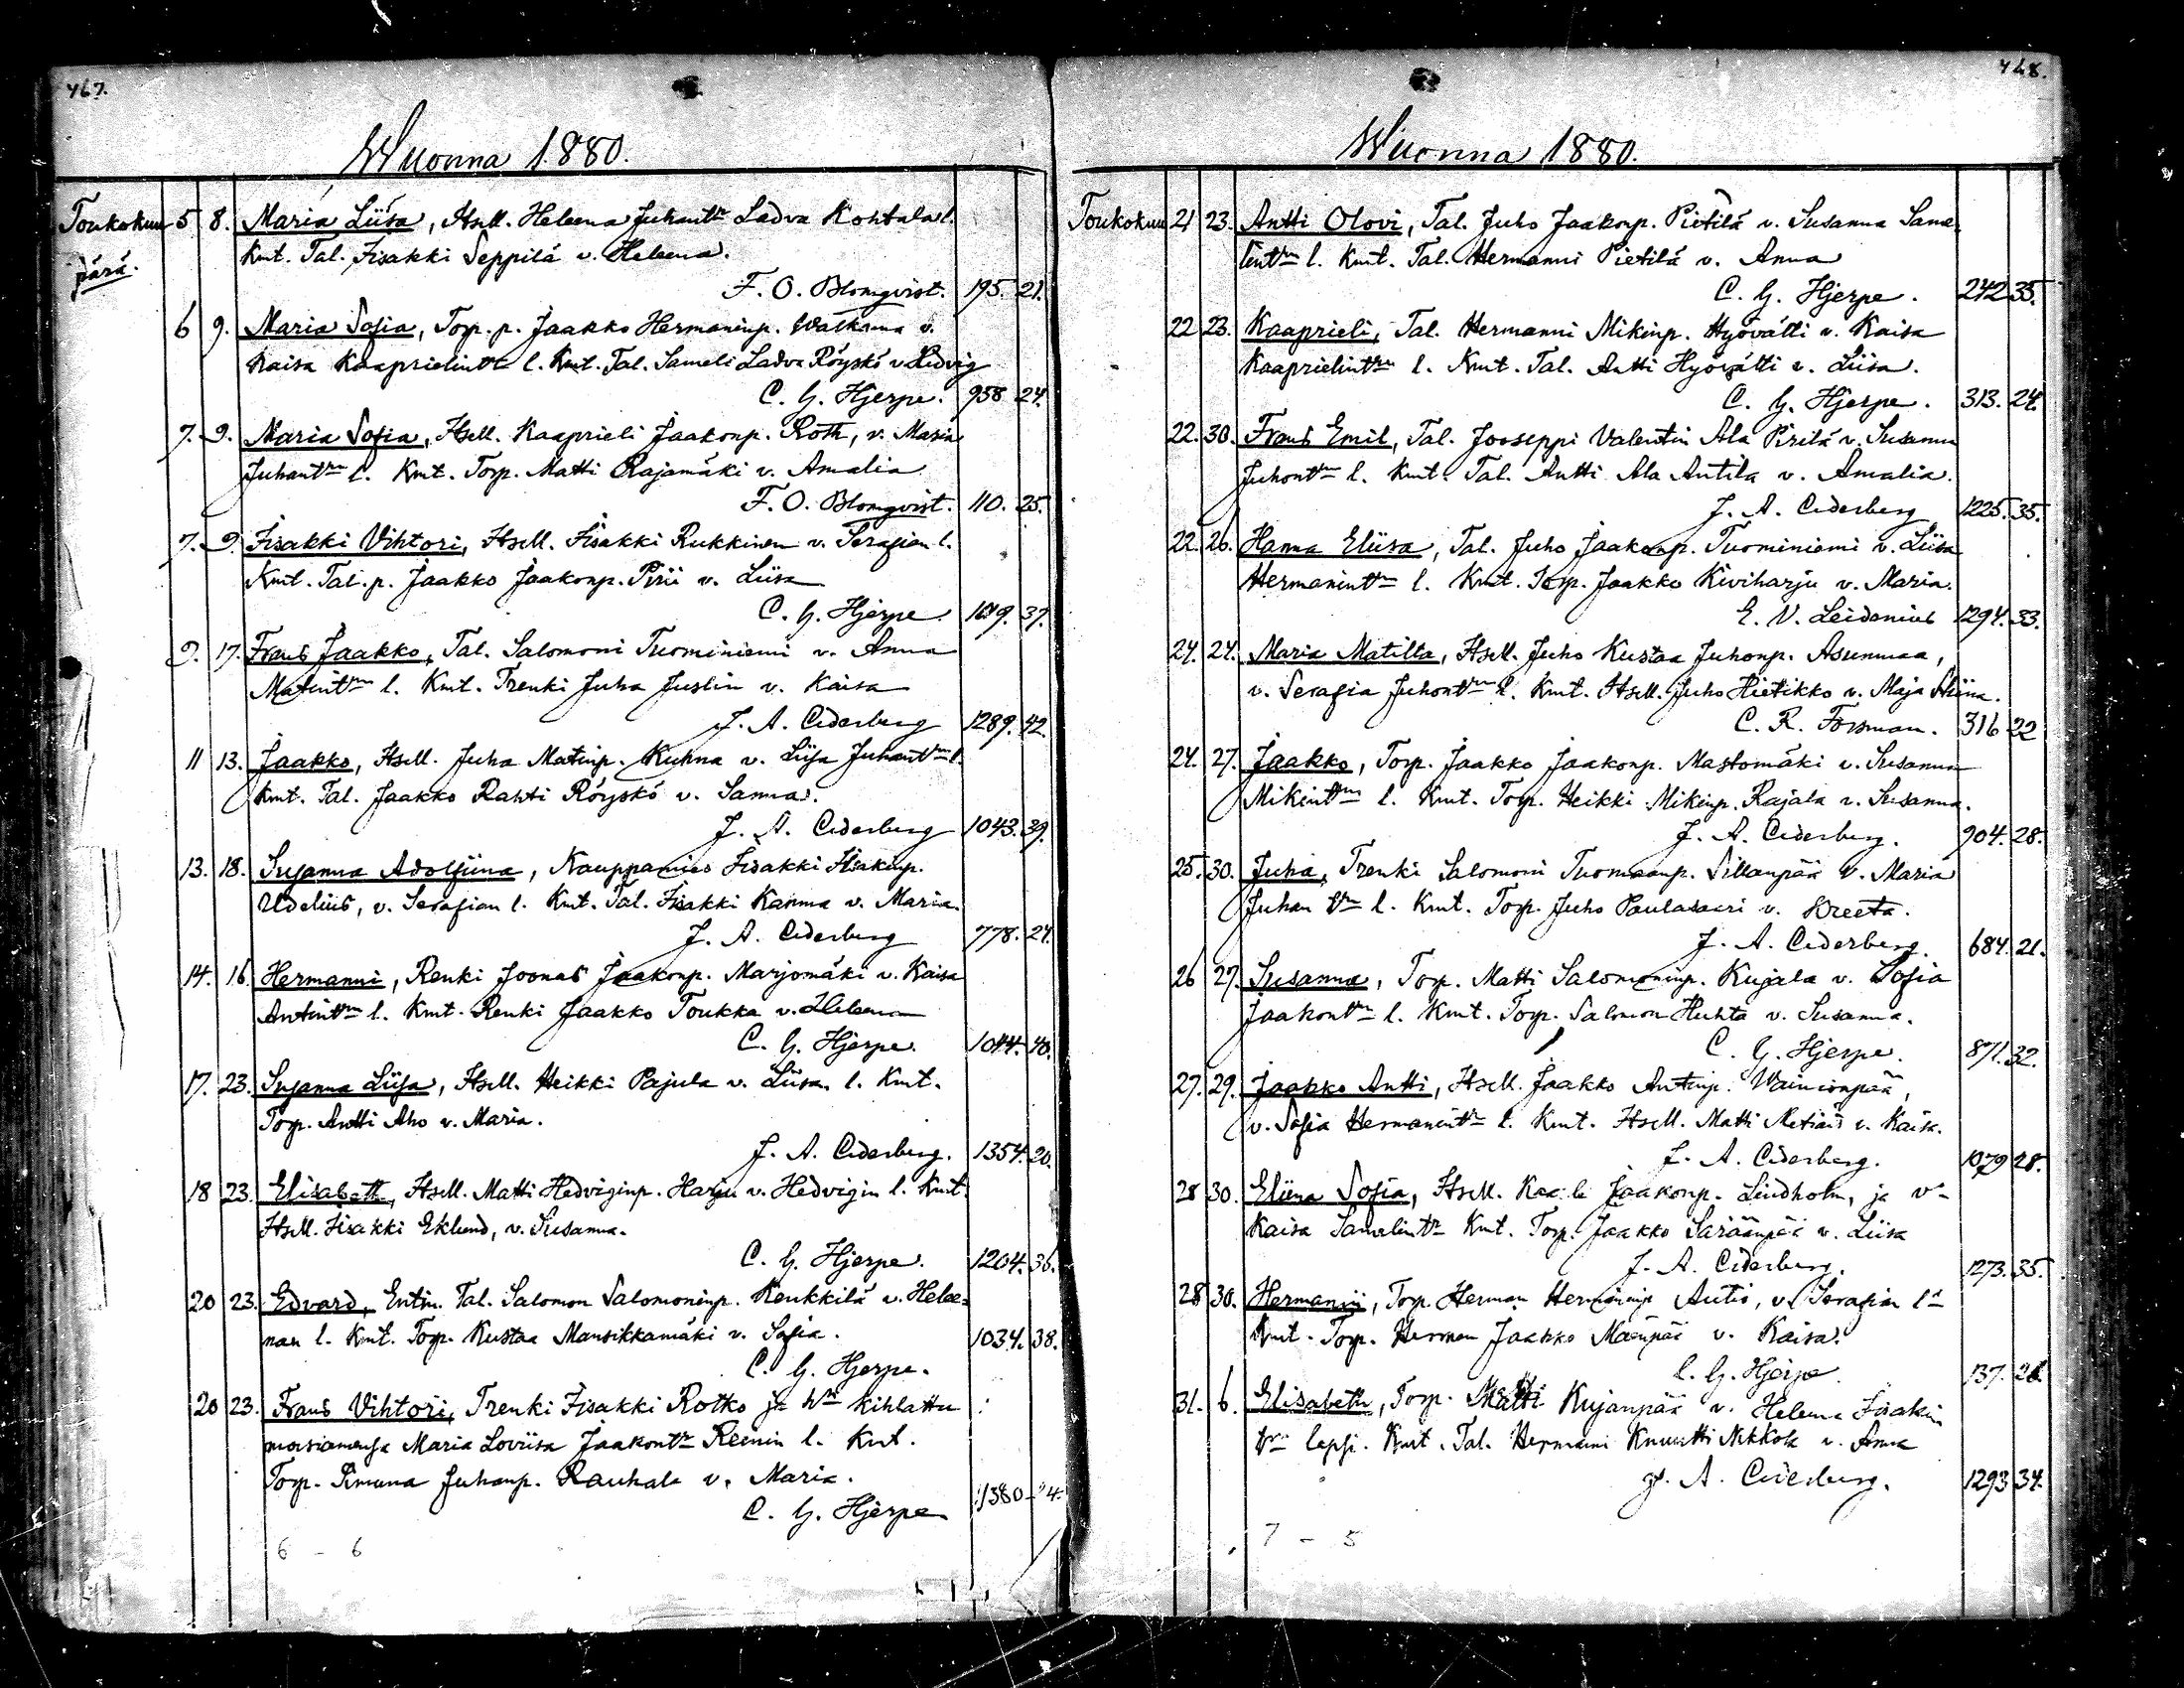 467.
Wuonna 1880.
Toukokuun 5 8. Maria Liisa, Itsell. Heleena Juhantr Ladva Kohtala l.
pärä. Kmt. Tal. Iisakki Seppilä v. Heleena.
F. O. Blomqvist. 195. 21.
6 9. Maria Sofia, Torp. p. Jaakko Hermaninp. Watkama v.
Kaisa Kaaprielintr l. Kmt. Tal. Sameli Ladva Röyskö v. Hedvig
C. G. Hjerpe. 958 24.
7. 9. Maria Sofia, Itsell. Kaaprieli Jaakonp. Roth, v. Maria
Juhanttrn l. Kmt. Torp. Matti Rajamäki v. Amalia
F. O. Blomqvist. 110. 25.
7. 9. Iisakki Vihtori, Itsell. Iisakki Rukkinen v. Serafian l.
Kmt. Tal. p. Jaakko Jaakonp. Pirii v. Liisa
C. G. Hjerpe 37.
9. 17. Frans Jaakko, Tal. Salomoni Tuominiemi v. Anna
Matinttrn l. Kmt. Trenki Juha Juslin v. Kaisa
J. A. Cederberg 1289. 42.
11 13. Jaakko, Itsell. Juha Matinp. Kuhna v. Liisa Juhanttrn l.
Kmt. Tal. Jaakko Rahti Röyskö v. Sanna.
J. A. Cederberg 1043. 39.
13. 18. Susanna Adolfiina, Kauppamies Iisakki Iisakinp.
Udelius, v. Serafian l. Kmt. Tal. Iisakki Kanma v. Maria.
J. A. Cederberg 778. 24.
14. 16. Hermanni, Renki Joonas Jaakonp. Marjomäki v. Kaisa
Antinttrn l. Kmt. Renki Jaakko Toukka v. Heleena
C. G. Hjerpe. 1044. 40.
17. 23. Susanna Liisa, Itsell. Heikki Pajula v. Liisan l. Kmt.
Torp. Antti Aho v. Maria.
J. A. Cederberg. 1354. 20.
18 23. Elisabeth, Itsell. Matti Hedviginp. Harju v. Hedvigin l. Kmt.
Itsell. Iisakki Eklund, v. Susanna.
C. G. Hjerpe. 1204. 36.
20 23. Edvard, Entin. Tal. Salomon Salomoninp. Renkkilä v. Helee-
nan l. Kmt. Torp. Kustaa Mansikkamäki v. Sofia. 1034. 38.
C. G. Hjerpe.
20 23. Frans Vihtori, Trenki Iisakki Rotko ja hn kihlattu
morsiamensa Maria Loviisa Jaakontr Reinin l. Kmt.
Torp. Juhanp. Rauhala v. Maria.
C. G. Hjerpe 1380
6 - 6
468.
Wuonna 1880.
Toukokuu 21 23. Antti Olovi, Tal. Juho Jaakonp. Pietilä v. Susanna Same-
linttrn l. Kmt. Tal. Hermanni Pietilä v. Anna
C. G. Hjerpe. 242 35.
22 23. Kaaprieli, Tal. Hermanni Mikinp. Hyövälti v. Kaisa
Kaaprielinttrn l. Kmt. Tal. Antti Hyövälti v. Liisa.
C. G. Hjerpe. 313. 24.
22. 30. Frans Emil, Tal. Jooseppi Valentin Ala Pirilä v. Susanna
Juhonttrn l. Kmt. Tal. Antti Ala Antila v. Amalia.
J. A. Cederberg 1225. 35.
22. 26. Hanna Eliisa, Tal. Juho Jaakonp. Tuominiemi v. Liisa
Hermaninttrn l. Kmt. Torp. Jaakko Kiviharju v. Maria.
E. V. Leidenius 1294. 33.
24. 24. Maria Matilta, Itsell. Juho Kustaa Juhonp. Asunmaa,
v. Serafia Juhonttrn l. Kmt. Itsell. Juho Hietikko v. Maja Stiina.
C. R. Forsman. 316 22
24. 27. Jaakko, Torp. Jaakko Jaakonp. Mastomäki v. Susanna
Mikinttrn l. Kmt. Torp. Heikki Mikinp. Rajala v. Susanna.
J. A. Cederberg. 904. 28.
25. 30. Juha, Trenki Salomoni Tuomaanp. Sillanpää v. Maria
Juhan ttrn l. Kmt. Torp. Juho Paulasaari v. Kreeta.
J. A. Cederberg. 684. 21.
26 27. Susanna, Torp. Matti Salomoninp. Kujala v. Sofia
Jaakonttrn l. Kmt. Torp. Salomon Huhta v. Susanna.
C. G. Hjerpe. 871. 32.
27. 29. Jaakko Antti, Itsell. Jaakko Antinp. Wainionpää,
v. Sofia Hermanintr l. Kmt. Itsell. Matti Metiäis v. Kaisa.
J. A. Cederberg. 1079 28.
28 30. Eliina Sofia, Itsell. Kaa:li Jaakonp. Lindholm, ja v-
Kaisa Samelintr Kmt. Torp. Jaakko Säräänpää v. Liisa
J. A. Cederberg. 1273. 35.
28 30. Hermanni, Torp. Herman Hermaninp Autio, v. Serafian l-
Kmt. Torp. Herman Jaakko Mäenpää v. Kaisa.
C. G. Hjerpe. 137.
31. 6. Elisabeth, Torp. Matti Kujanpää v. Helena Iisakin
ttrn lapsi. Kmt. Tal. Hermanni Knuutti Nikkola v. Anna
J. A. Cederberg. 1293 34.
7 - 5